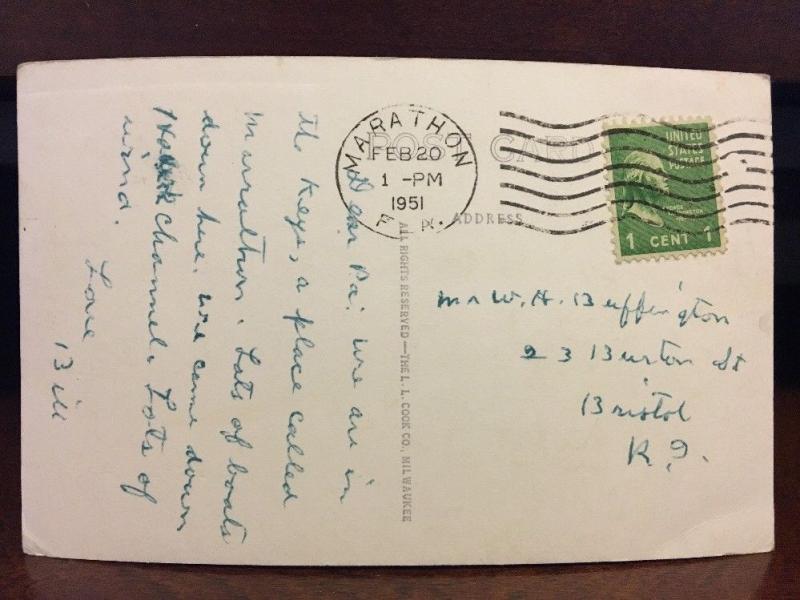 POST CARD
MARATHON
FEB 20
1 -PM
1951
UNITED
STATES
POSTAGE
1 CENT 1
ADDRESS
Dear Pa: we are in
the Keys, a place called
Marathon. Lots of boats
down here. we came down
channel. Lots of
wind.
Love
Bill
ALL RIGHTS RESERVED—THE L. L. COOK CO., MILWAUKEE
Mr W. H. Buffington
23 Burton St
Bristol
R.I.